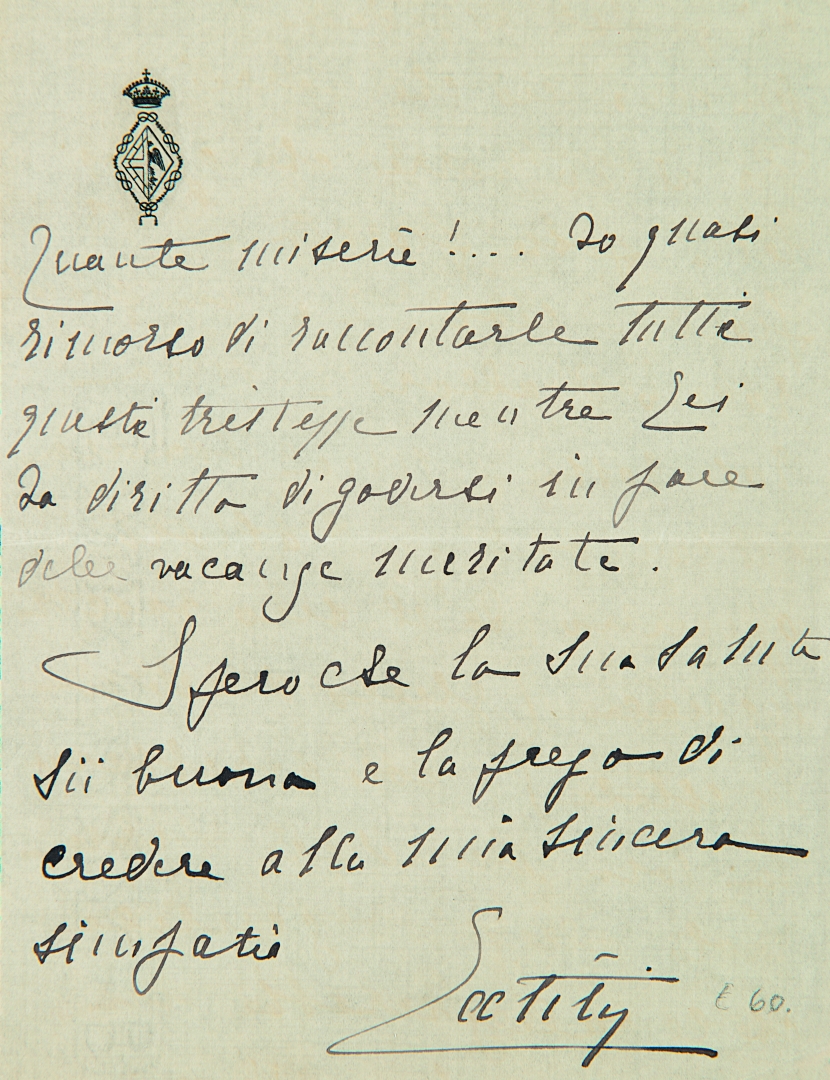 Quante miserie!.... Ho quasi
rimorso di raccontarle tutte
queste tristezze mentre Lei
ha diritto di godersi in pace
delle vacanze meritate.
Spero che la sua salute
sii buona e la prego di
credere alla mia sincera
simpatia
£ 60.